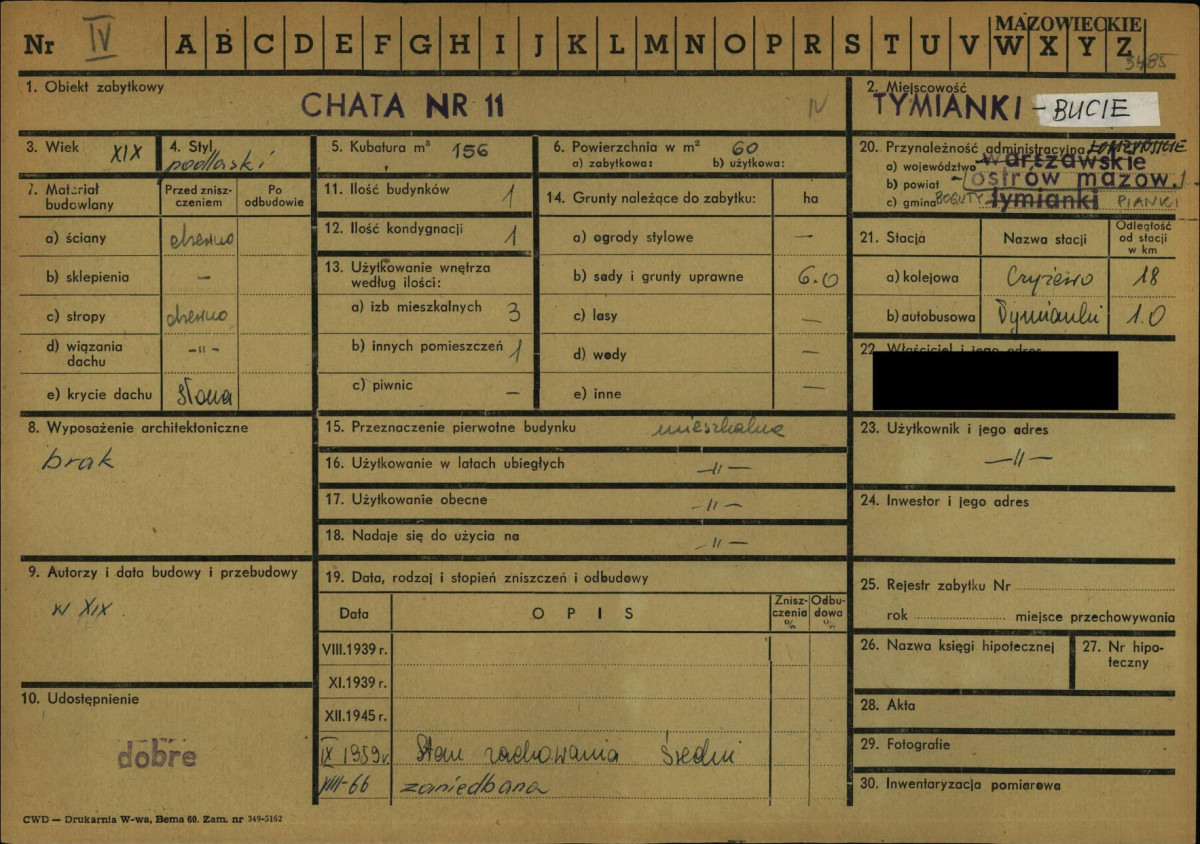 Nr IV A B C D E F G H I J K L M N O P R S T U V W X Y Z
MAZOWIECKIE
3485
1. Obiekt zabytkowy
CHATA NR 11
N
2. Miejscowość
TYMIANKI - BUCIE
3. Wiek XIX
4. Styl podlaski
5. Kubatura m³ 156
6. Powierzchnia w m² 60
a) zabytkowa: b) użytkowa:
20. Przynależność administracyjna ŁOMŻYŃSKIE
a) województwo warszawskie
b) powiat ostrów mazow.
c) gmina BOGUTY tymianki PIANKI
7. Materiał budowlany
Przed zniszczeniem
Po odbudowie
a) ściany drewno
b) sklepienia —
c) stropy drewno
d) wiązania dachu -"-
e) krycie dachu słoma
11. Ilość budynków 1
12. Ilość kondygnacji 1
13. Użytkowanie wnętrza
według ilości:
a) izb mieszkalnych 3
b) innych pomieszczeń 1
c) piwnic —
14. Grunty należące do zabytku: ha
a) ogrody stylowe —
b) sady i grunty uprawne 6.0
c) lasy —
d) wody —
e) inne —
21. Stacja
Nazwa stacji
Odległość od stacji w km
a) kolejowa Czyżewo 18
b) autobusowa Tymianki 1.0
22. Właściciel i jego adres
8. Wyposażenie architektoniczne
brak
15. Przeznaczenie pierwotne budynku mieszkalne
16. Użytkowanie w latach ubiegłych —"—
17. Użytkowanie obecne -"—
18. Nadaje się do użycia na -"—
23. Użytkownik i jego adres
—"—
24. Inwestor i jego adres
9. Autorzy i data budowy i przebudowy
w XIX
10. Udostępnienie
dobre
19. Data, rodzaj i stopień zniszczeń i odbudowy
Data
OPIS
Zniszczenia %
Odbudowa %
VIII.1939 r.
XI.1939 r.
XII.1945 r.
IX 1959 r. Stan zachowania średni
VIII-66 zaniedbana
25. Rejestr zabytku Nr
rok miejsce przechowywania
26. Nazwa księgi hipotecznej
27. Nr hipoteczny
28. Akta
29. Fotografie
30. Inwentaryzacja pomiarowa
CWD — Drukarnia W-wa, Bema 60. Zam. nr 349-5162